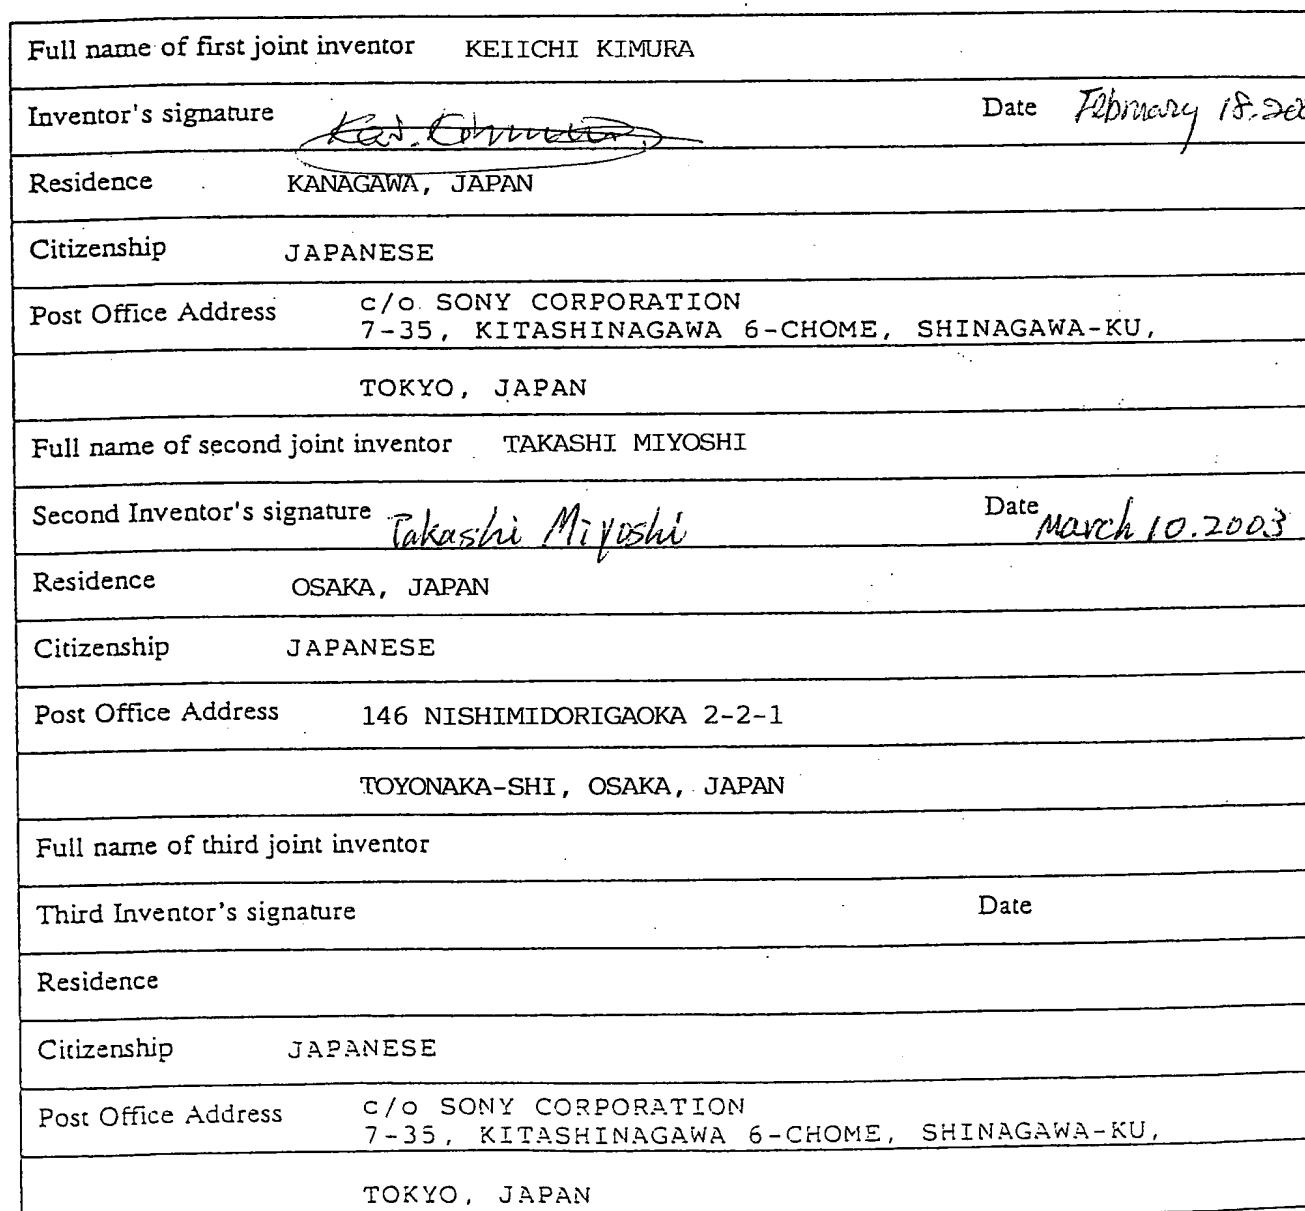 Full name of first joint inventor KEIICHI KIMURA
Inventor's signature Date February 18.200
Residence KANAGAWA, JAPAN
Citizenship JAPANESE
Post Office Address c/o SONY CORPORATION
7-35, KITASHINAGAWA 6-CHOME, SHINAGAWA-KU,
TOKYO, JAPAN
Full name of second joint inventor TAKASHI MIYOSHI
Second Inventor's signature Takashi Miyoshi Date March 10.2003
Residence OSAKA, JAPAN
Citizenship JAPANESE
Post Office Address 146 NISHIMIDORIGAOKA 2-2-1
TOYONAKA-SHI, OSAKA, JAPAN
Full name of third joint inventor
Third Inventor's signature Date
Residence
Citizenship JAPANESE
Post Office Address c/o SONY CORPORATION
7-35, KITASHINAGAWA 6-CHOME, SHINAGAWA-KU,
TOKYO, JAPAN